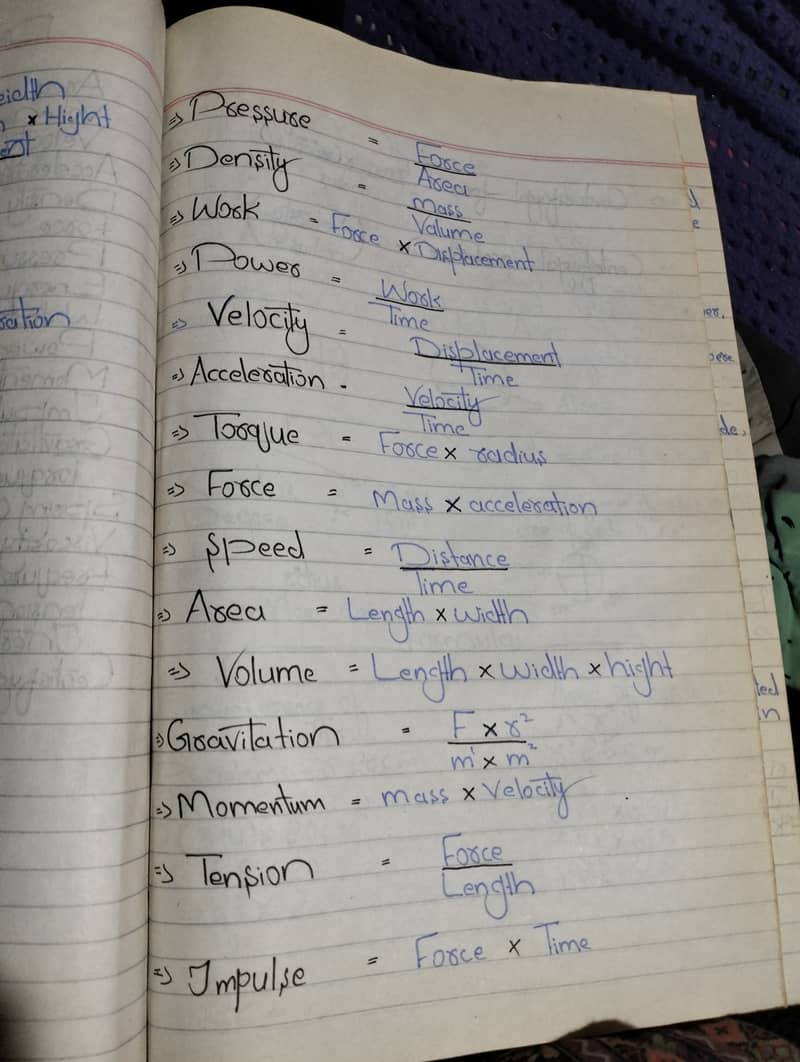 eidth
x Hight
ration
⇒ Pressure = Force
Area
⇒ Density = Mass
Valume
⇒ Work = Force x Displacement
⇒ Power = Work
Time
⇒ Velocity = Displacement
Time
⇒ Acceleration = Velocity
Time
⇒ Torque = Force x radius
⇒ Force = Mass x acceleration
⇒ Speed = Distance
Time
⇒ Area = Length x width
⇒ Volume = Length x width x hight
⇒ Gravitation = F x r²
m¹ x m²
⇒ Momentum = mass x Velocity
⇒ Tension = Force
Length
⇒ Impulse = Force x Time
de,
ted
in